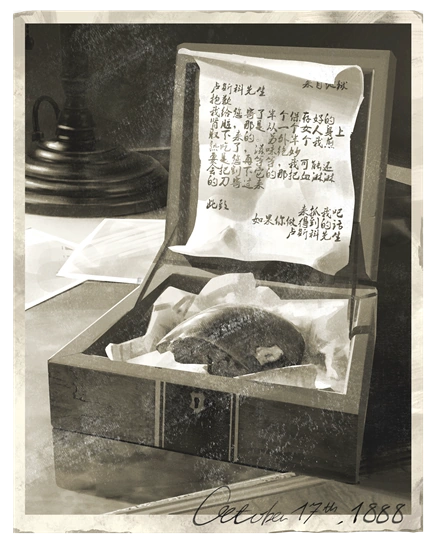 来自地狱
卢斯科先生
抱歉
我给您寄了半个保存好的
肾脏,那是从一个女人身上
取下来的,另半个我煎
熟吃了,滋味绝妙
要是您再等等,我可能还
会把下它的那把血淋淋
的刀寄过来
此致
来抓我吧
如果你做得到的话
卢斯科先生
October 17th, 1888